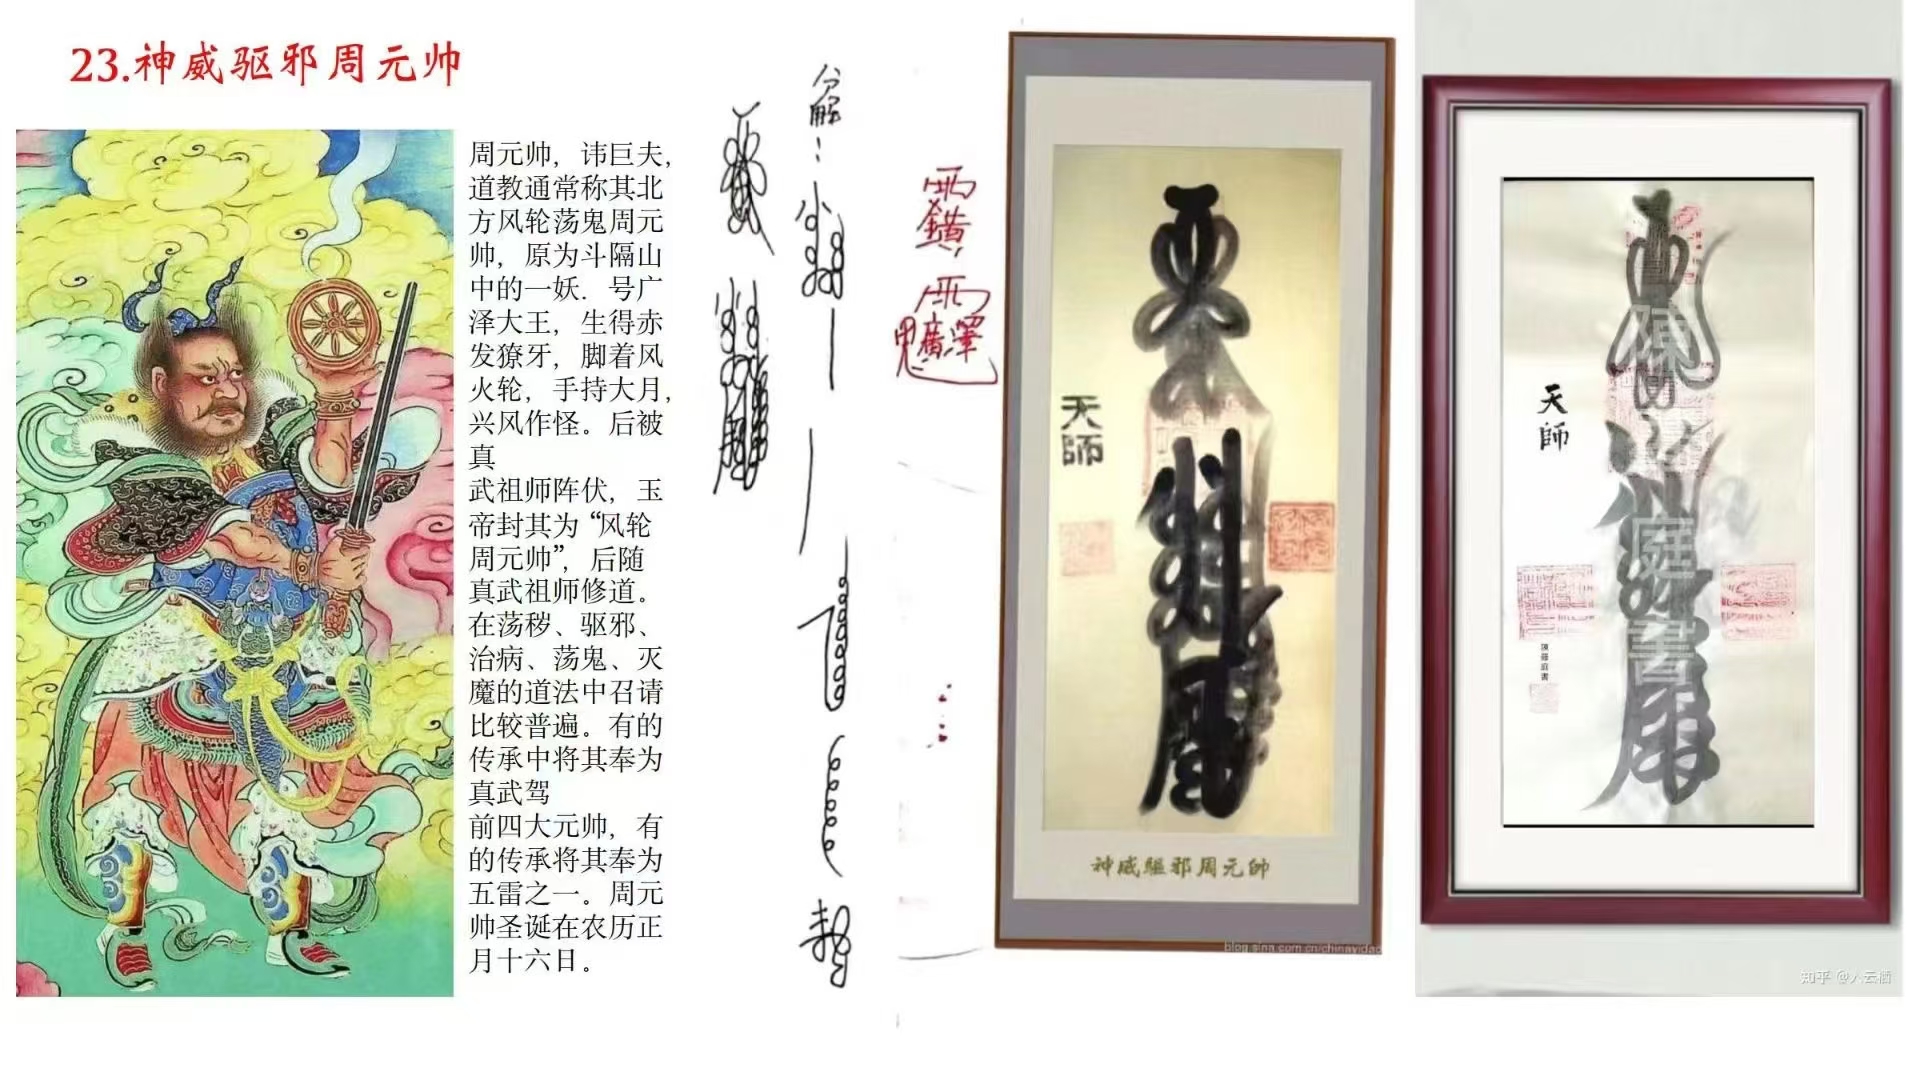 23.神威驱邪周元帅
周元帅，讳巨夫，
道教通常称其北
方风轮荡鬼周元
帅，原为斗隔山
中的一妖. 号广
泽大王，生得赤
发獠牙，脚着风
火轮，手持大月，
兴风作怪。后被
真
武祖师阵伏，玉
帝封其为“风轮
周元帅”，后随
真武祖师修道。
在荡秽、驱邪、
治病、荡鬼、灭
魔的道法中召请
比较普遍。有的
传承中将其奉为
真武驾
前四大元帅，有
的传承将其奉为
五雷之一。周元
帅圣诞在农历正
月十六日。
分解：
天師
神威驅邪周元帥
blog.sina.com.cn/chinayidao
天師
陳蓉庭書
知乎 @八云栖